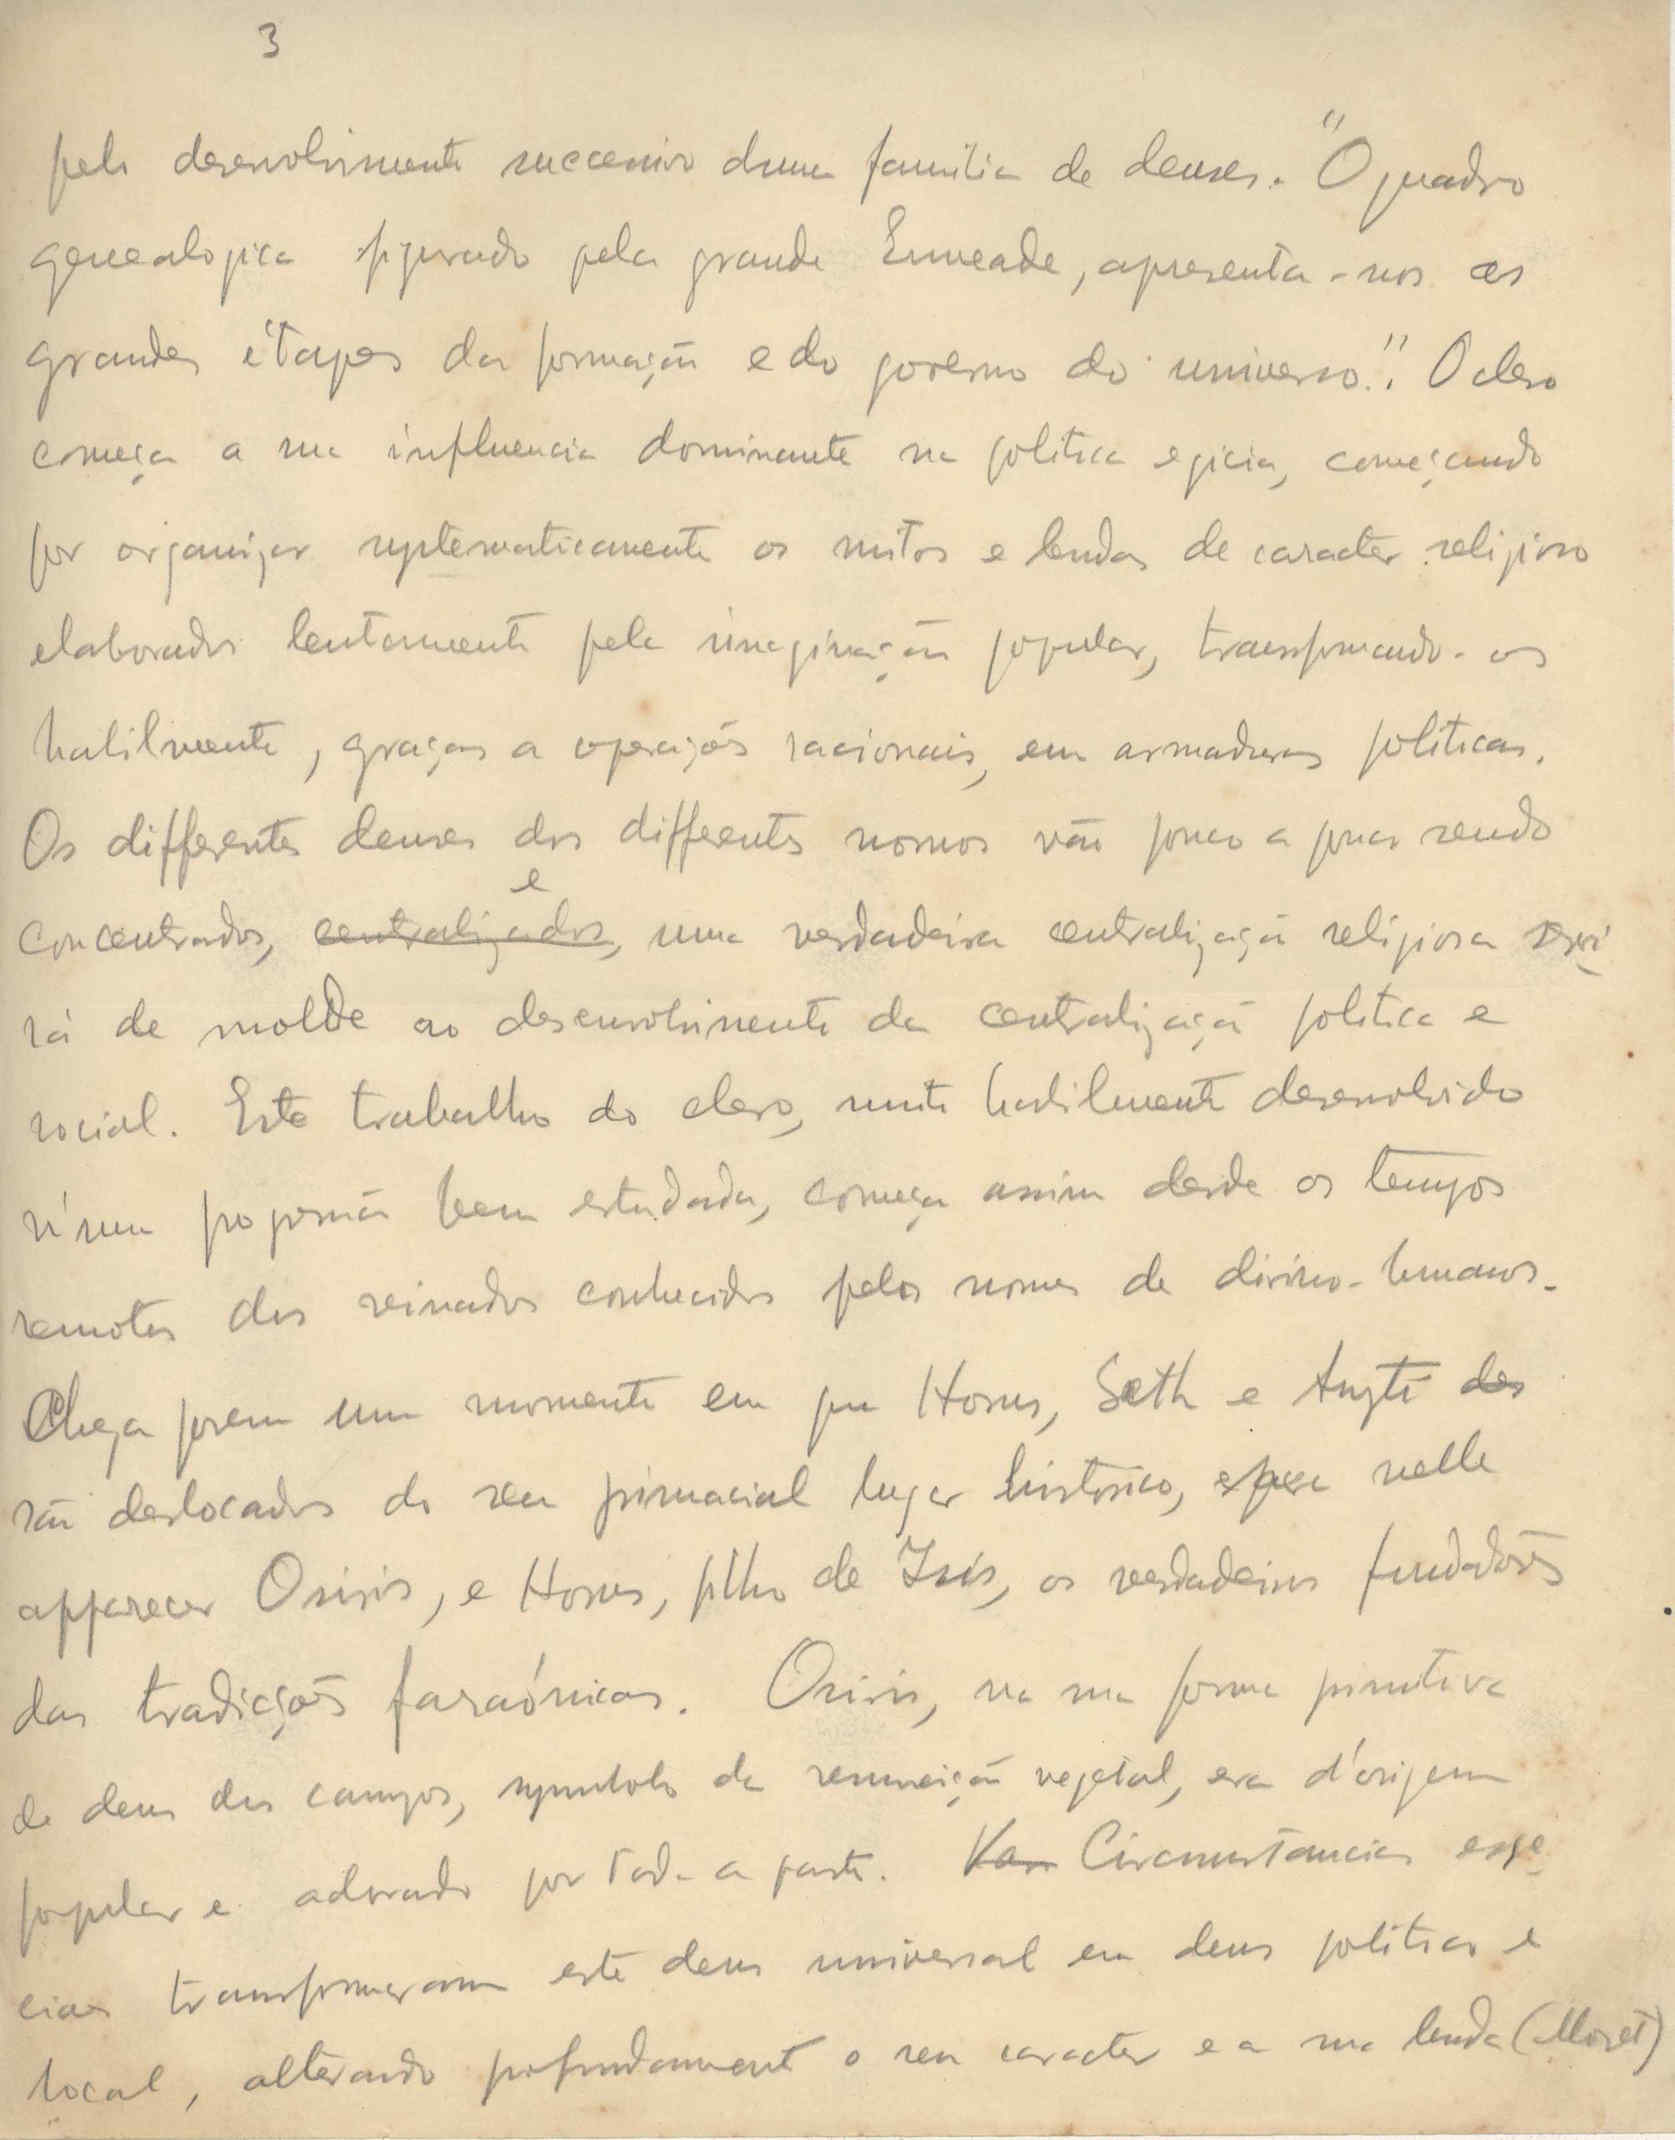 3
pelo desenvolvimento successivo duma familia de deuses. "O quadro
genealogico figurado pela grande Enneade, apresenta-nos as
grandes étapes da formação e do governo do universo.". O clero
começa a sua influencia dominante na politica egicia, começando
por organizar systematicamente os mitos e lendas de caracter religioso
elaborados lentamente pela imaginação popular, transformando-os
habilmente, graças a operações racionais, em armaduras politicas.
Os differentes deuses dos differentes nomos vão pouco a pouco sendo
e
concentrados, centralizados, uma verdadeira centralização religiosa servi
rá de molde ao desenvolvimento da centralização politica e
social. Este trabalho do clero, muito habilmente desenvolvido
n'uma progressão bem estudada, começa assim desde os tempos
remotos dos reinados conhecidos pelos nomes de divino-humanos.
Chega porem um momento em que Horus, Seth e Anzti des
rão deslocados do seu primacial lugar historico, para nelle
apparecer Osiris, e Horus, filho de Isis, os verdadeiros fundadores
das tradicções faraónicas. Osiris, na sua forma primitiva
de deus dos campos, symbolo da ressurreição vegetal, era d'origem
popular e adorado por toda a parte. Van Circumstancias espe
ciaes transformaram este deus universal em deus politico e
local, alterando profundamente o seu caracter e a sua lenda (Moret)